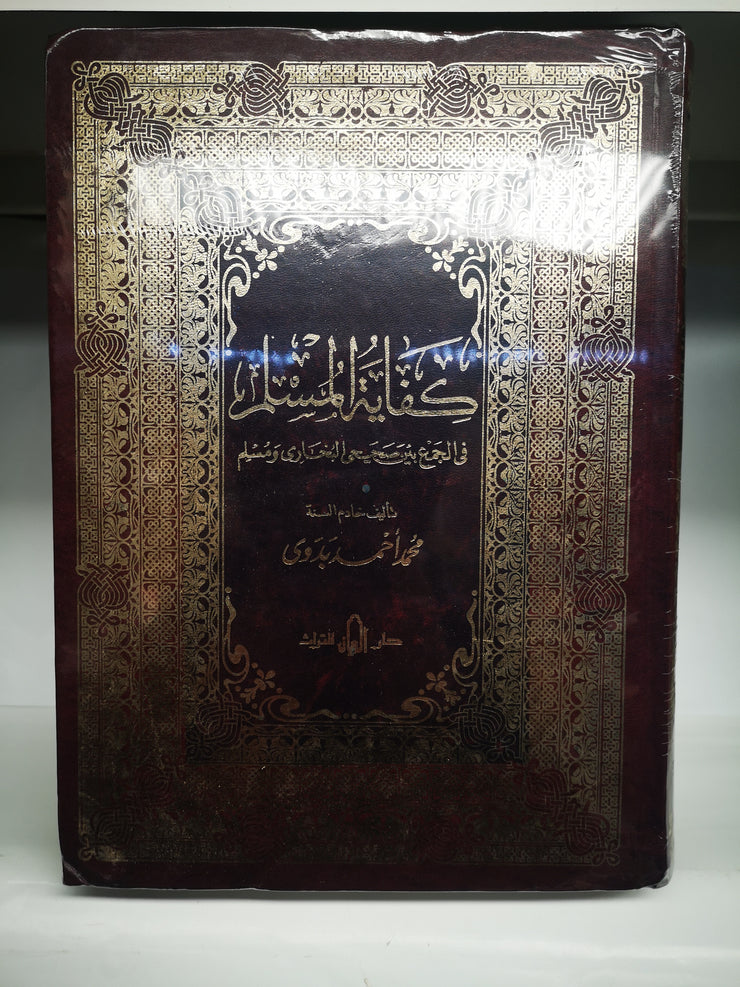 كفاية المسلم
في الجمع بين صحيحي البخاري ومسلم
تأليف خادم السنة
محمد أحمد بدوى
دار الريان للتراث